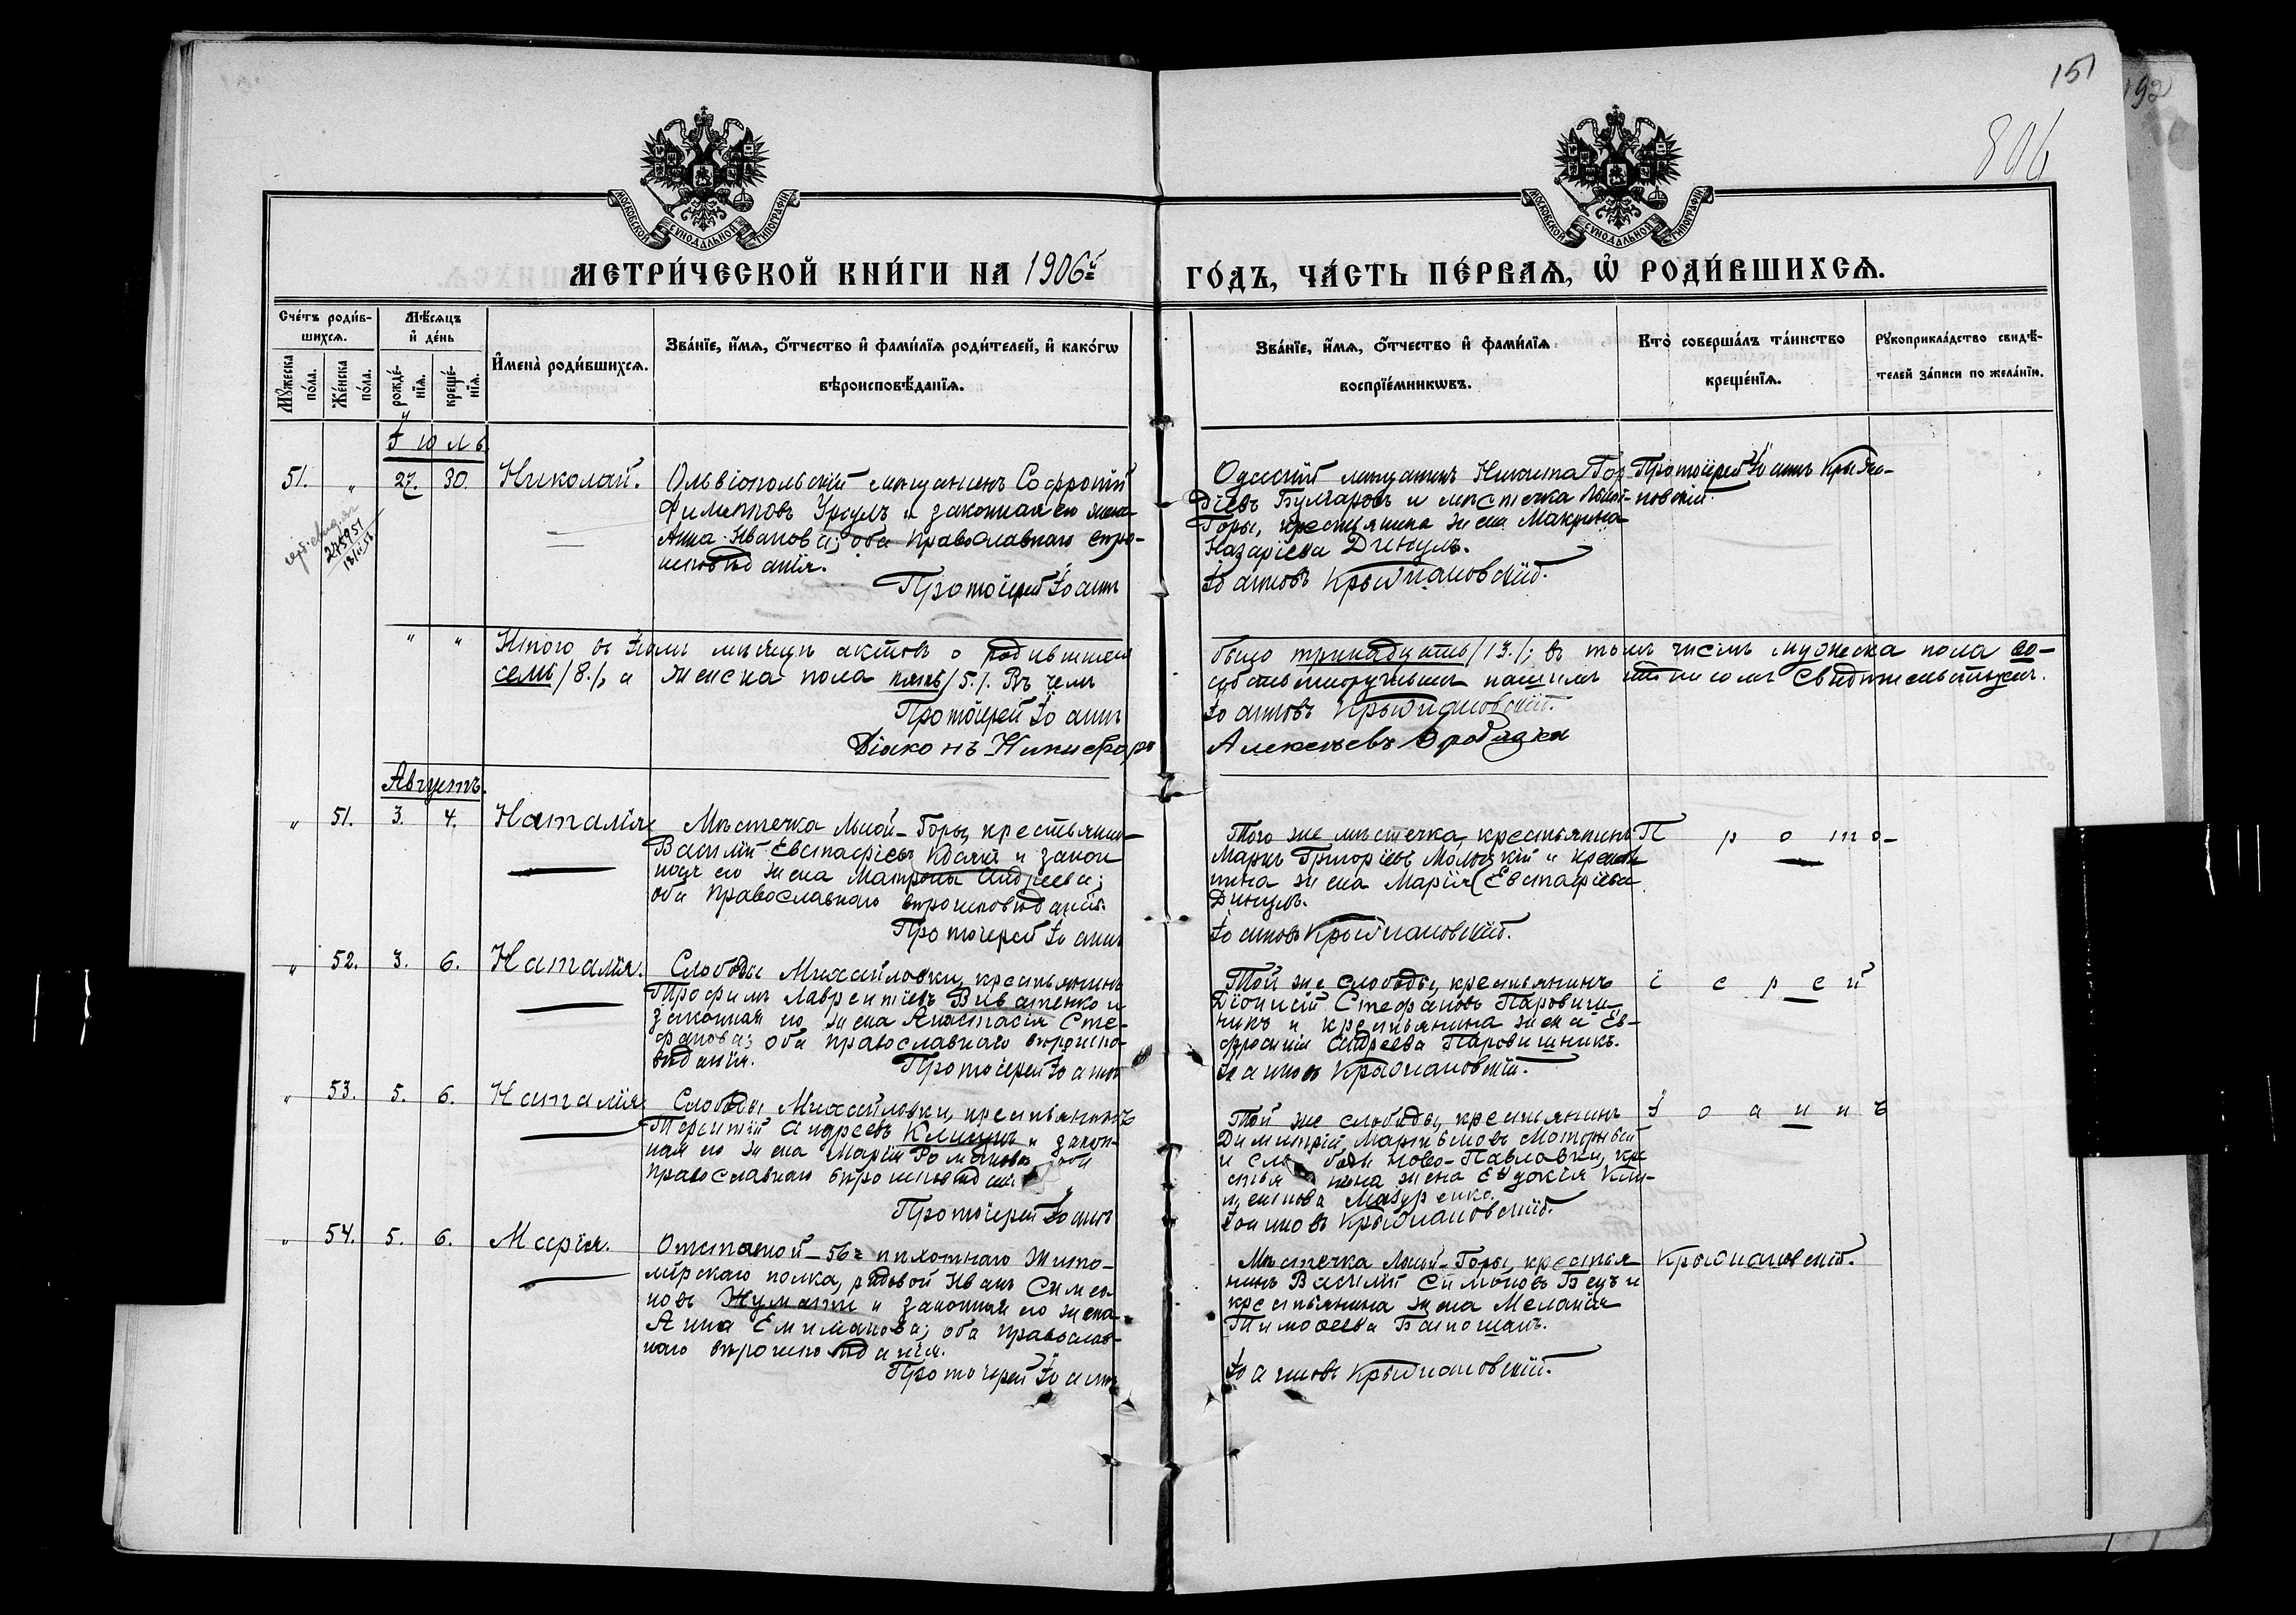 151
192
806
МОСКОВСКОЙ СУНОДАЛЬНОЙ ТИПОГРАФІИ
МОСКОВСКОЙ СУНОДАЛЬНОЙ ТИПОГРАФІИ
МЕТРИ́ЧЕСКОЙ КНИ́ГИ НА 1906й
ГО́ДЪ, ЧА́СТЬ ПЕ́РВАѦ, Ѡ҆ РОДИ́ВШИХСѦ.
Сче́тъ роди́вшихсѧ.
Мꙋ́жеска по́ла.
Же́нска по́ла.
Мѣ́сѧцъ и҆ де́нь
рожде́нїѧ.
креще́нїѧ.
И҆мена̀ роди́вшихсѧ.
Зва́нїе, и҆́мѧ, ѻ҆́тчество и҆ фами́лїѧ роди́телей, и҆ како́гѡ
вѣроисповѣ́данїѧ.
Зва́нїе, и҆́мѧ, ѻ҆́тчество и҆ фами́лїѧ
воспрїе́мникѡвъ.
Кто̀ соверша́лъ та́инство
креще́нїѧ.
Рꙋкоприкла́дство свидѣ́-
телей за́писи по жела́нїю.
Іюль
51. " 27. 30. Николай.
Ольвіопольскій мѣщанинъ Софроній
Филиповъ Урсулъ и законная его жена
Анна Иванова; оба православнаго вѣро-
исповѣданія.
Протоіерей Іоаннъ
Одесскій мѣщанинъ Никита Гор
діевъ Булгаровъ и мѣстечка Лысой-
Горы, крестьянина жена Макрина
Назаріева Дикулъ.
Іоанновъ Крыжановскій.
Протоіерей Іоаннъ Крыжа-
новскій.
275951
" " Итого въ Іюлѣ мѣсяцѣ актовъ о родившихся
семь /8./, а женска пола пять /5./. Въ чемъ
Протоіерей Іоаннъ
Діаконъ Никифоръ
было тринадцать /13./; въ томъ числѣ мужеска пола во-
собственноручнымъ нашимъ подписомъ свидѣтельствуемъ.
Іоанновъ Крыжановскій.
Алексѣевъ
Августъ.
" 51. 3. 4. Наталія
Мѣстечка Лысой-Горы, крестьянинъ
Василій Евстафіевъ и закон
ная его жена Матрона Андреева;
оба православнаго вѣроисповѣданія.
Протоіерей Іоаннъ
Того же мѣстечка, крестьянинъ
Маркъ Григоріевъ и крестья
нина жена Марія Евстафіева
Дикулъ.
Іоанновъ Крыжановскій.
П р о т о-
" 52. 3. 6. Наталія.
Слободы Михайловки, крестьянинъ
Трофимъ Лаврентіевъ Виватенко и
законная его жена Анастасія Сте-
фанова; оба православнаго вѣроиспо-
вѣданія.
Протоіерей Іоаннъ
Той же слободы, крестьянинъ
Діонисій Стефановъ Паровиш-
никъ и крестьянина жена Ев-
фросинія Андреева Паровишникъ.
Іоанновъ Крыжановскій.
і е р е й
" 53. 5. 6. Наталія
Слободы Михайловки, крестьянинъ
Терентій Андреевъ Климъ и закон-
ная его жена Марія Романова оба
православнаго вѣроисповѣданія
Протоіерей Іоаннъ
Той же слободы, крестьянинъ
Димитрій Мартыновъ Моторный
и слободы Ново-Павловки, кре
стьянина жена Евдокія Кли-
ментова Мазуренко.
Іоанновъ Крыжановскій.
І о а н н ъ
" 54. 5. 6. Марія.
Отставной 56го пѣхотнаго Жито-
мірскаго полка, рядовой Иванъ Симео-
новъ и законная его жена
Анна Емиліанова; оба православ-
наго вѣроисповѣданія.
Протоіерей Іоаннъ
Мѣстечка Лысой-Горы, крестья
нинъ Василій Симоновъ и
крестьянина жена Меланія
Тимофеева
Іоанновъ Крыжановскій.
Крыжановскій.